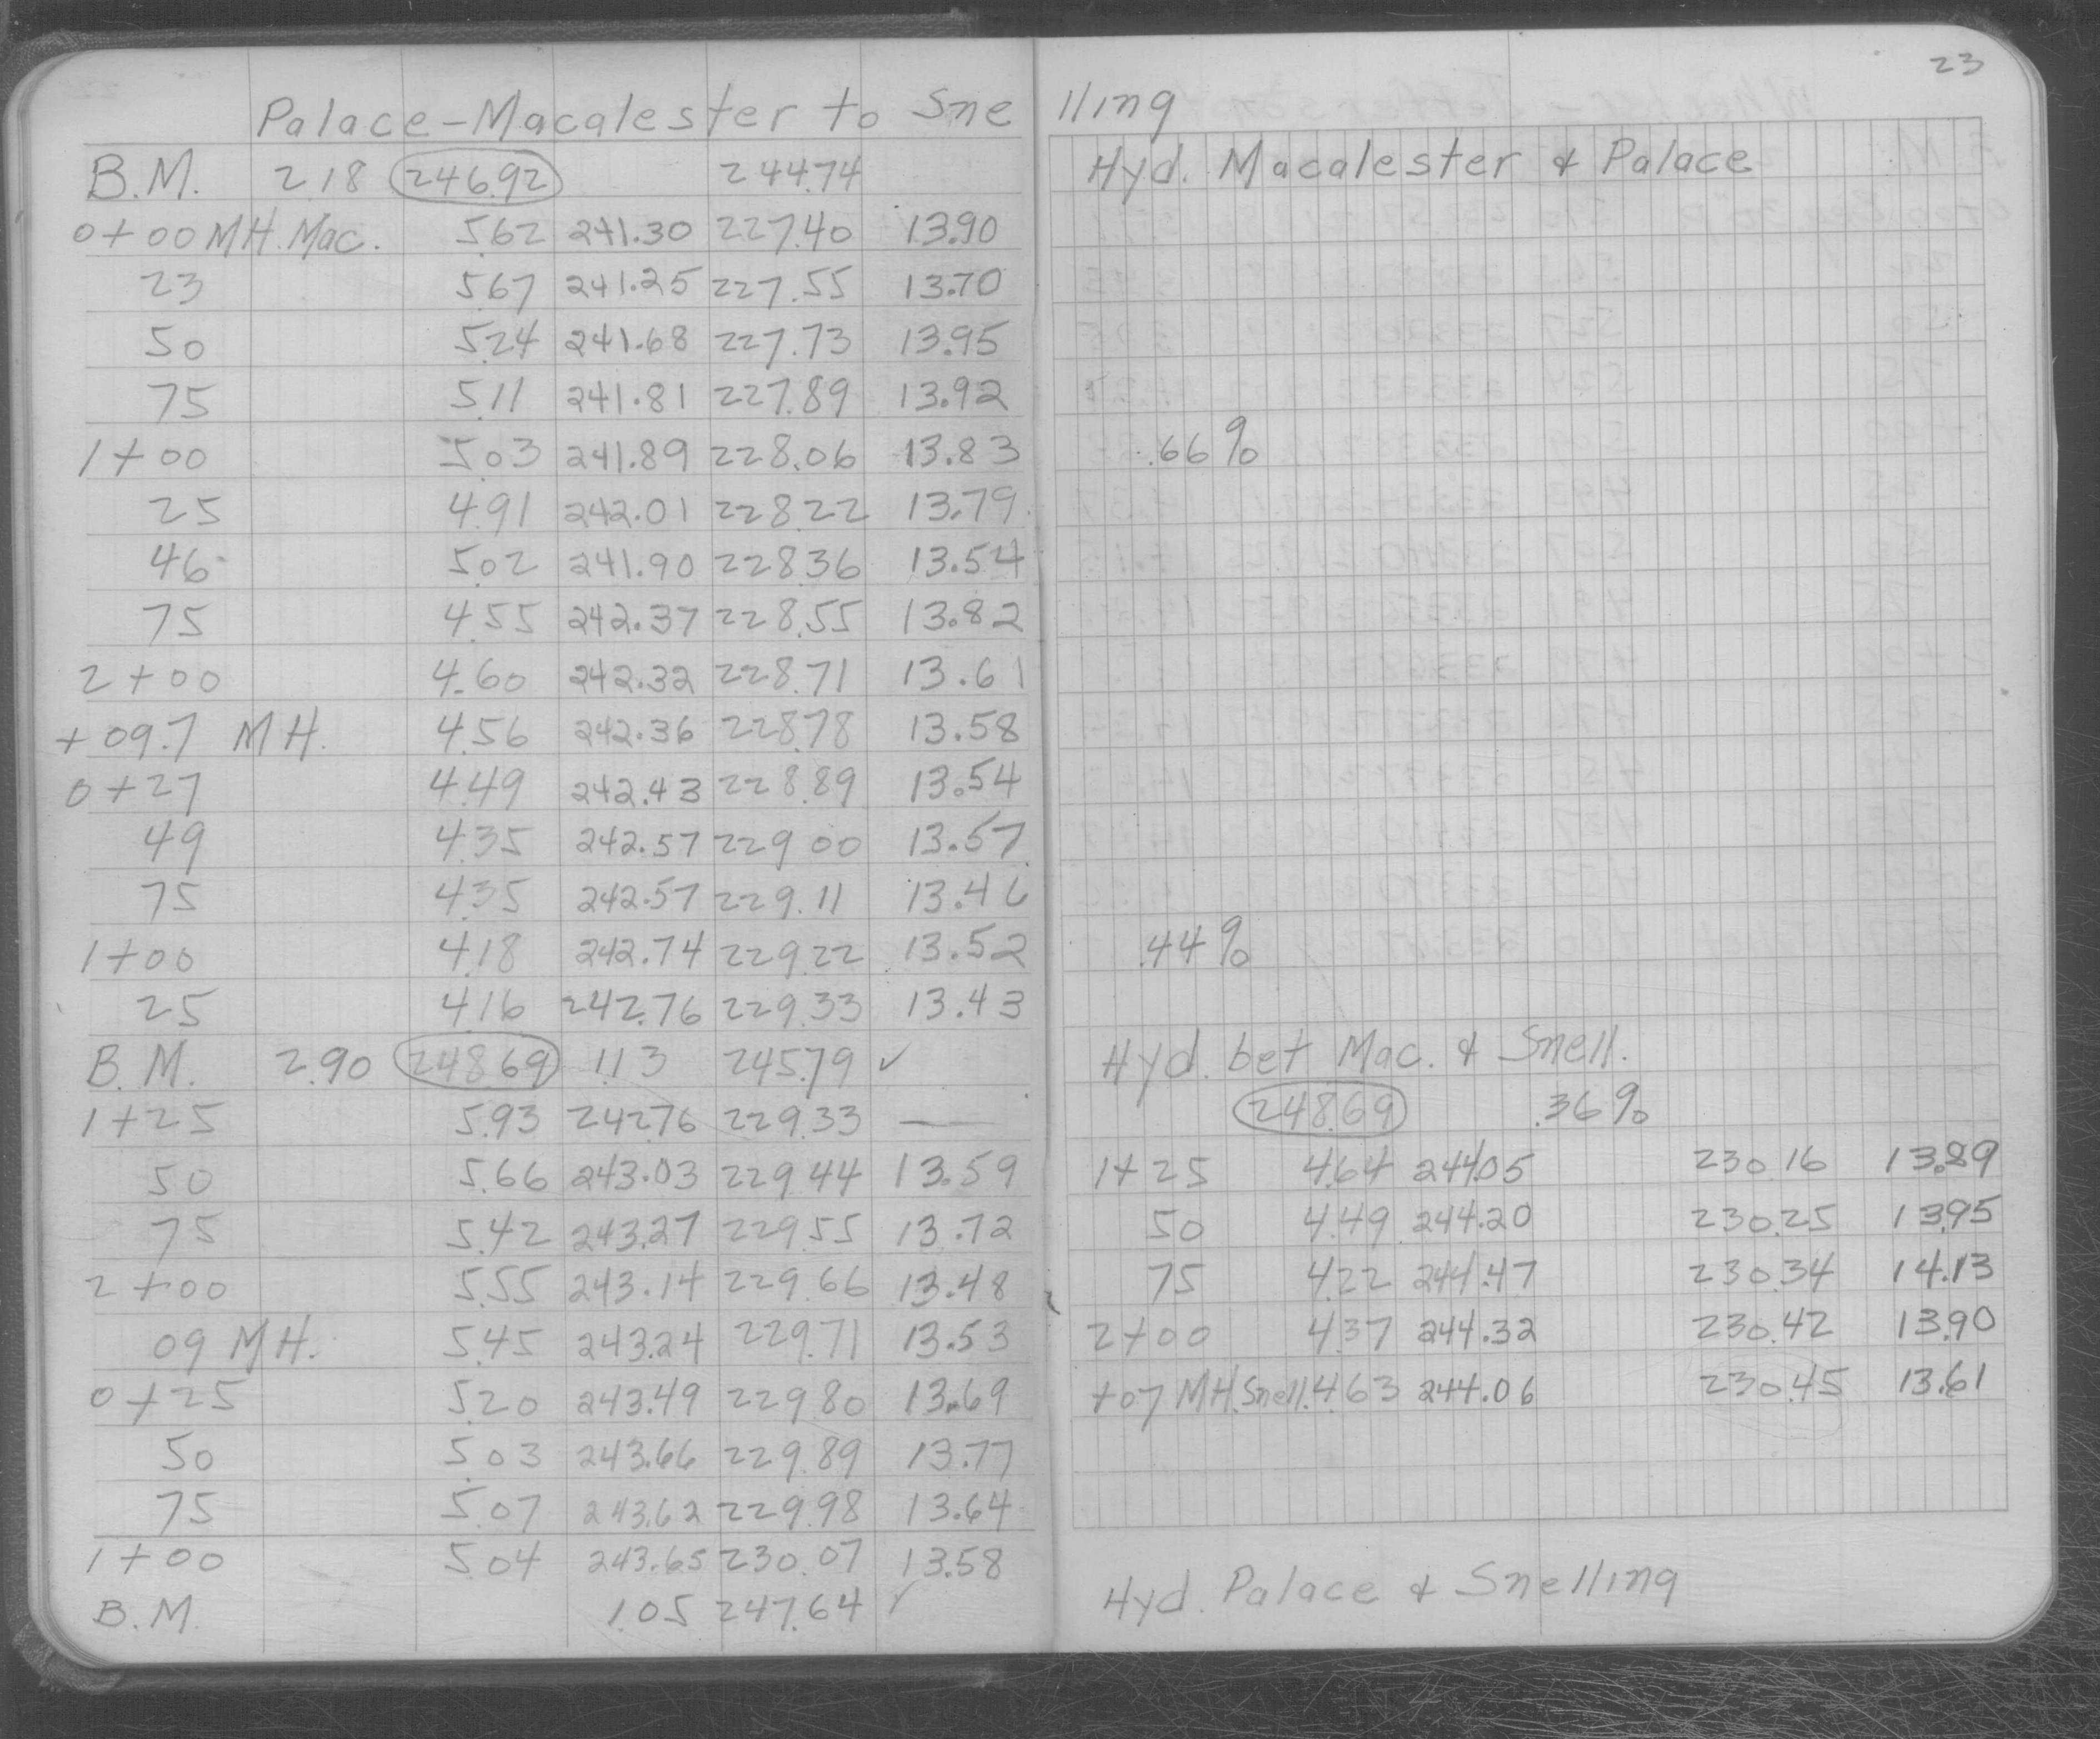 23
Palace-Macalester to Snelling
B.M. 2.18 246.92 244.74 Hyd. Macalester & Palace
0+00 MH. Mac. 5.62 241.30 227.40 13.90
23 5.67 241.25 227.55 13.70
50 5.24 241.68 227.73 13.95
75 5.11 241.81 227.89 13.92
1+00 5.03 241.89 228.06 13.83 .66%
25 4.91 242.01 228.22 13.79
46 5.02 241.90 228.36 13.54
75 4.55 242.37 228.55 13.82
2+00 4.60 242.32 228.71 13.61
+09.7 MH. 4.56 242.36 228.78 13.58
0+27 4.49 242.43 228.89 13.54
49 4.35 242.57 229.00 13.57
75 4.35 242.57 229.11 13.46
1+00 4.18 242.74 229.22 13.52 .44%
25 4.16 242.76 229.33 13.43
B.M. 2.90 248.69 1.13 245.79 ✓ Hyd. bet Mac. & Snell.
1+25 5.93 242.76 229.33 — 248.69 .36%
50 5.66 243.03 229.44 13.59 1+25 4.64 244.05 230.16 13.89
75 5.42 243.27 229.55 13.72 50 4.49 244.20 230.25 13.95
2+00 5.55 243.14 229.66 13.48 75 4.22 244.47 230.34 14.13
09 MH. 5.45 243.24 229.71 13.53 2+00 4.37 244.32 230.42 13.90
0+25 5.20 243.49 229.80 13.69 +07 MH. Snell. 4.63 244.06 230.45 13.61
50 5.03 243.66 229.89 13.77
75 5.07 243.62 229.98 13.64
1+00 5.04 243.65 230.07 13.58
B.M. 1.05 247.64 ✓ Hyd. Palace & Snelling